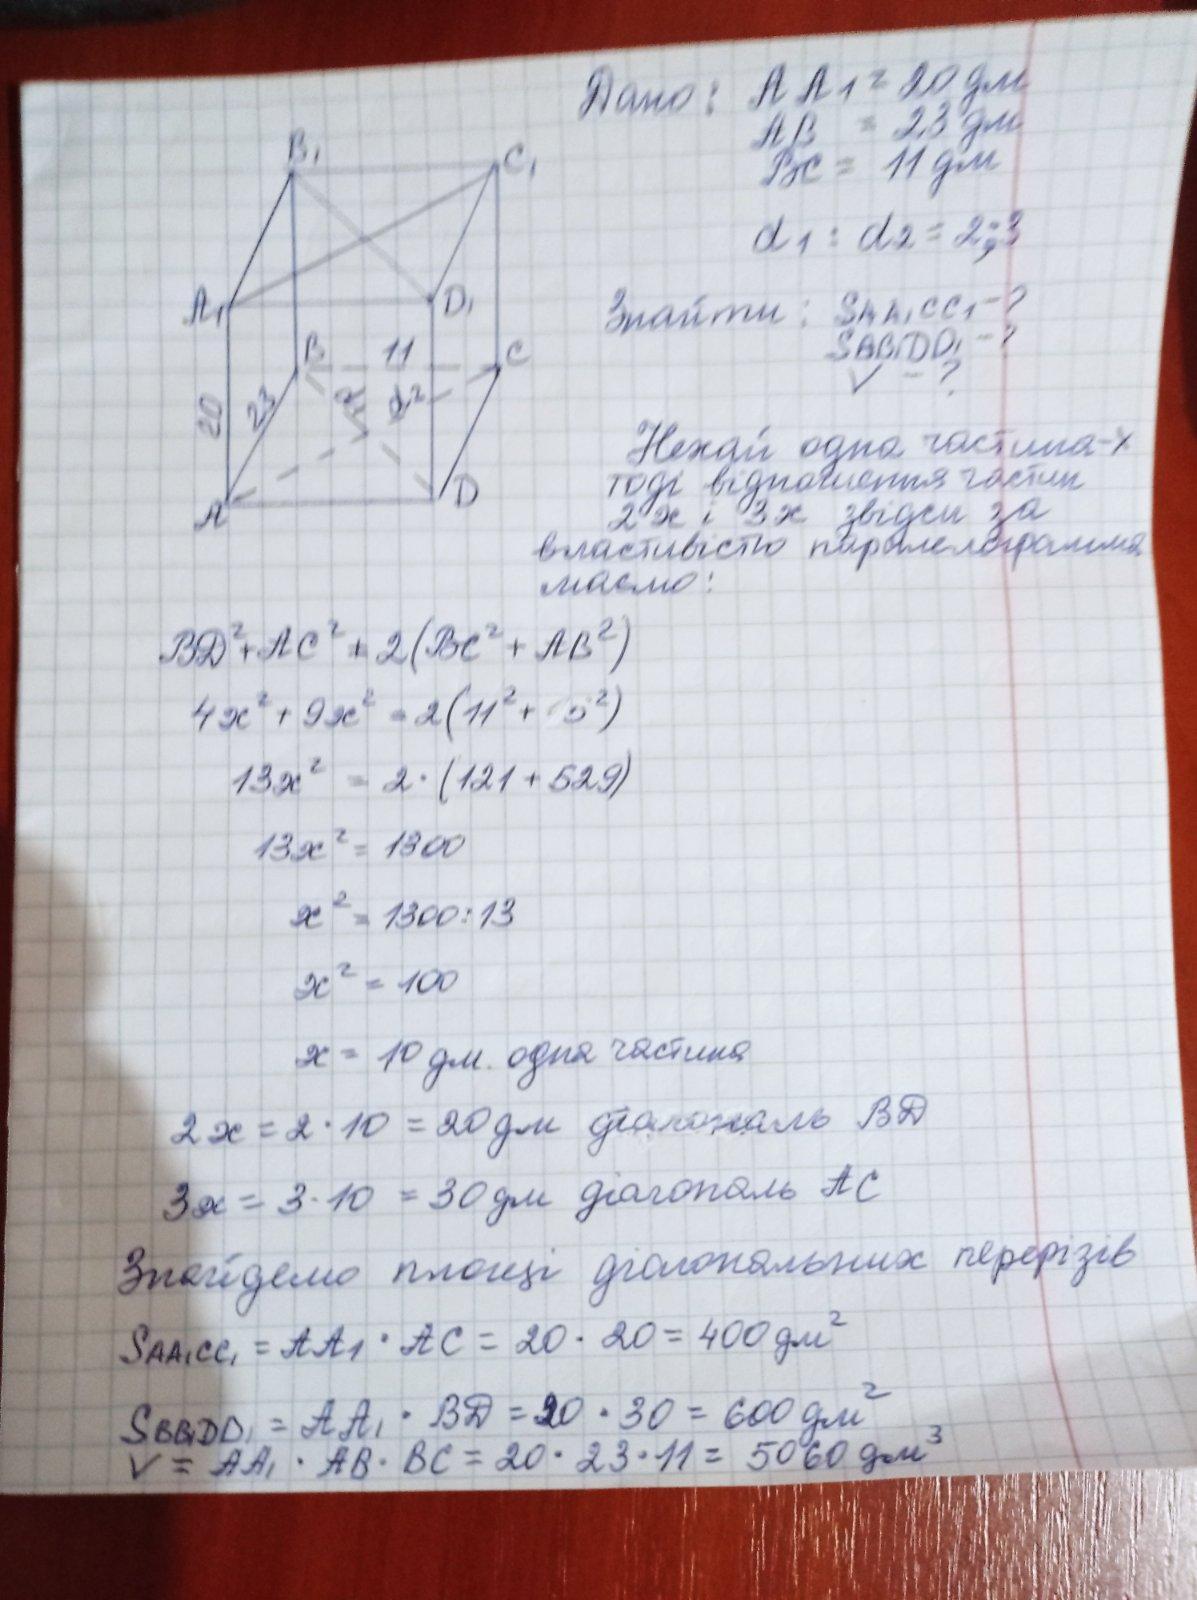 Дано: AA1 = 20 дм
AB = 23 дм
BC = 11 дм
d1 : d2 = 2:3
Знайти: SAA1CC1 - ?
SBB1DD1 - ?
V - ?
B1
C1
A1
D1
B
11
C
20
23
d2
A
D
Нехай одна частина - x
тоді відношення частин
2x і 3x звідси за
властивістю паралелограмма
маємо:
BD² + AC² = 2(BC² + AB²)
4x² + 9x² = 2(11² + ²)
13x² = 2·(121 + 529)
13x² = 1300
x² = 1300:13
x² = 100
x = 10 дм. одна частина
2x = 2·10 = 20 дм діагональ BD
3x = 3·10 = 30 дм діагональ AC
Знайдемо площі діагональних перерізів
SAA1CC1 = AA1 · AC = 20 · 20 = 400 дм²
SBB1DD1 = AA1 · BD = 20 · 30 = 600 дм²
V = AA1 · AB · BC = 20 · 23 · 11 = 5060 дм³